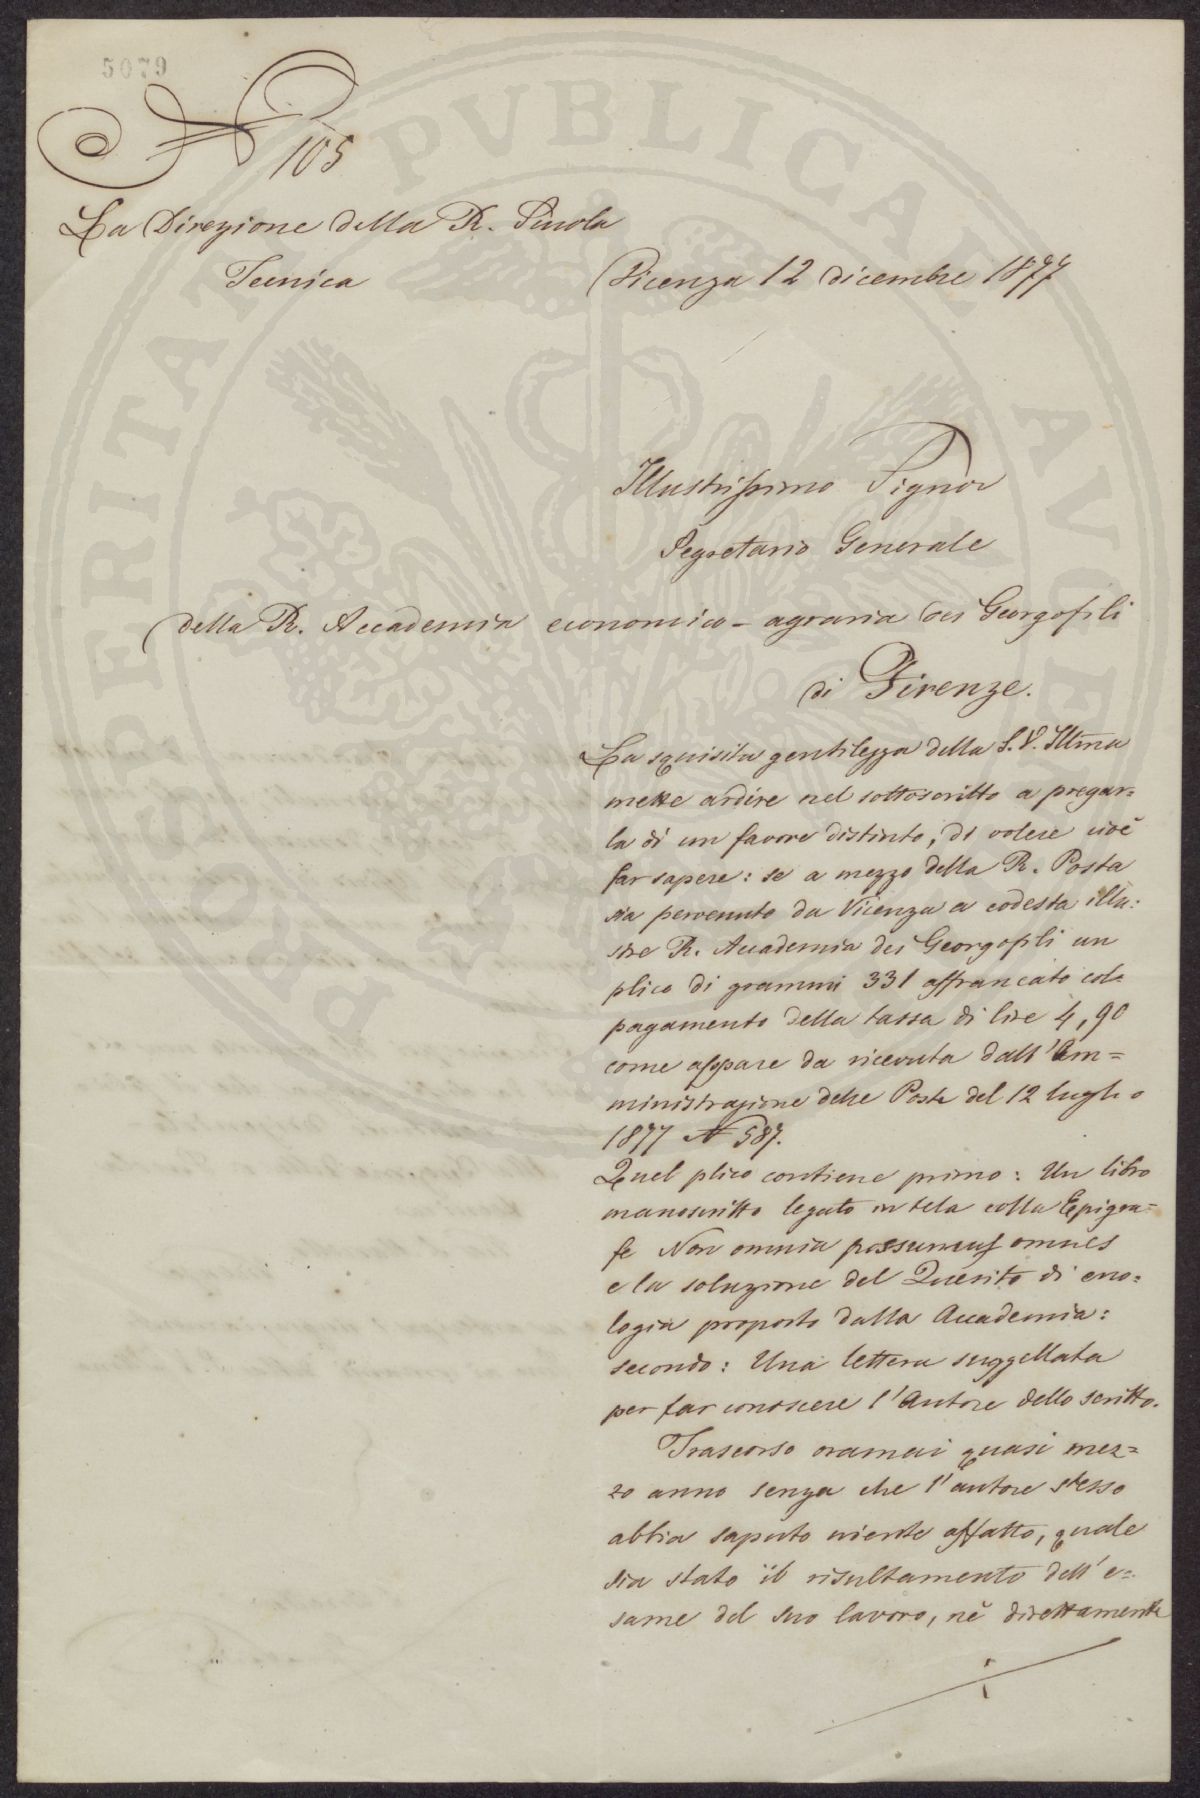 PROSPERITATI PVBLICAE AVGENDAE
5079
N° 105
La Direzione della R. Scuola
Tecnica
Vicenza 12 dicembre 1877
Illustrissimo Signor
Segretario Generale
della R. Accademia economico-agraria dei Georgofili
di Firenze.
La squisita gentilezza della S.V. Illma
mette ardire nel sottoscritto a pregar=
la di un favore distinto, di volere cioè
far sapere: se a mezzo della R. Posta
sia pervenuto da Vicenza a codesta illu=
stre R. Accademia dei Georgofili un
plico di grammi 331 affrancato col
pagamento della tassa di lire 4,90
come appare da ricevuta dall'Am=
ministrazione delle Poste del 12 luglio
1877 N 587.
Quel plico contiene primo: Un libro
manoscritto legato in tela colla Epigra=
fe Non omnia possumus omnes
e la soluzione del Quesito di eno=
logia proposto dalla Accademia:
secondo: Una lettera suggellata
per far conoscere l'Autore dello scritto.
Trascorso oramai quasi mez=
zo anno senza che l'autore stesso
abbia saputo niente affatto, quale
sia stato il risultamento dell'e=
same del suo lavoro, nè direttamente